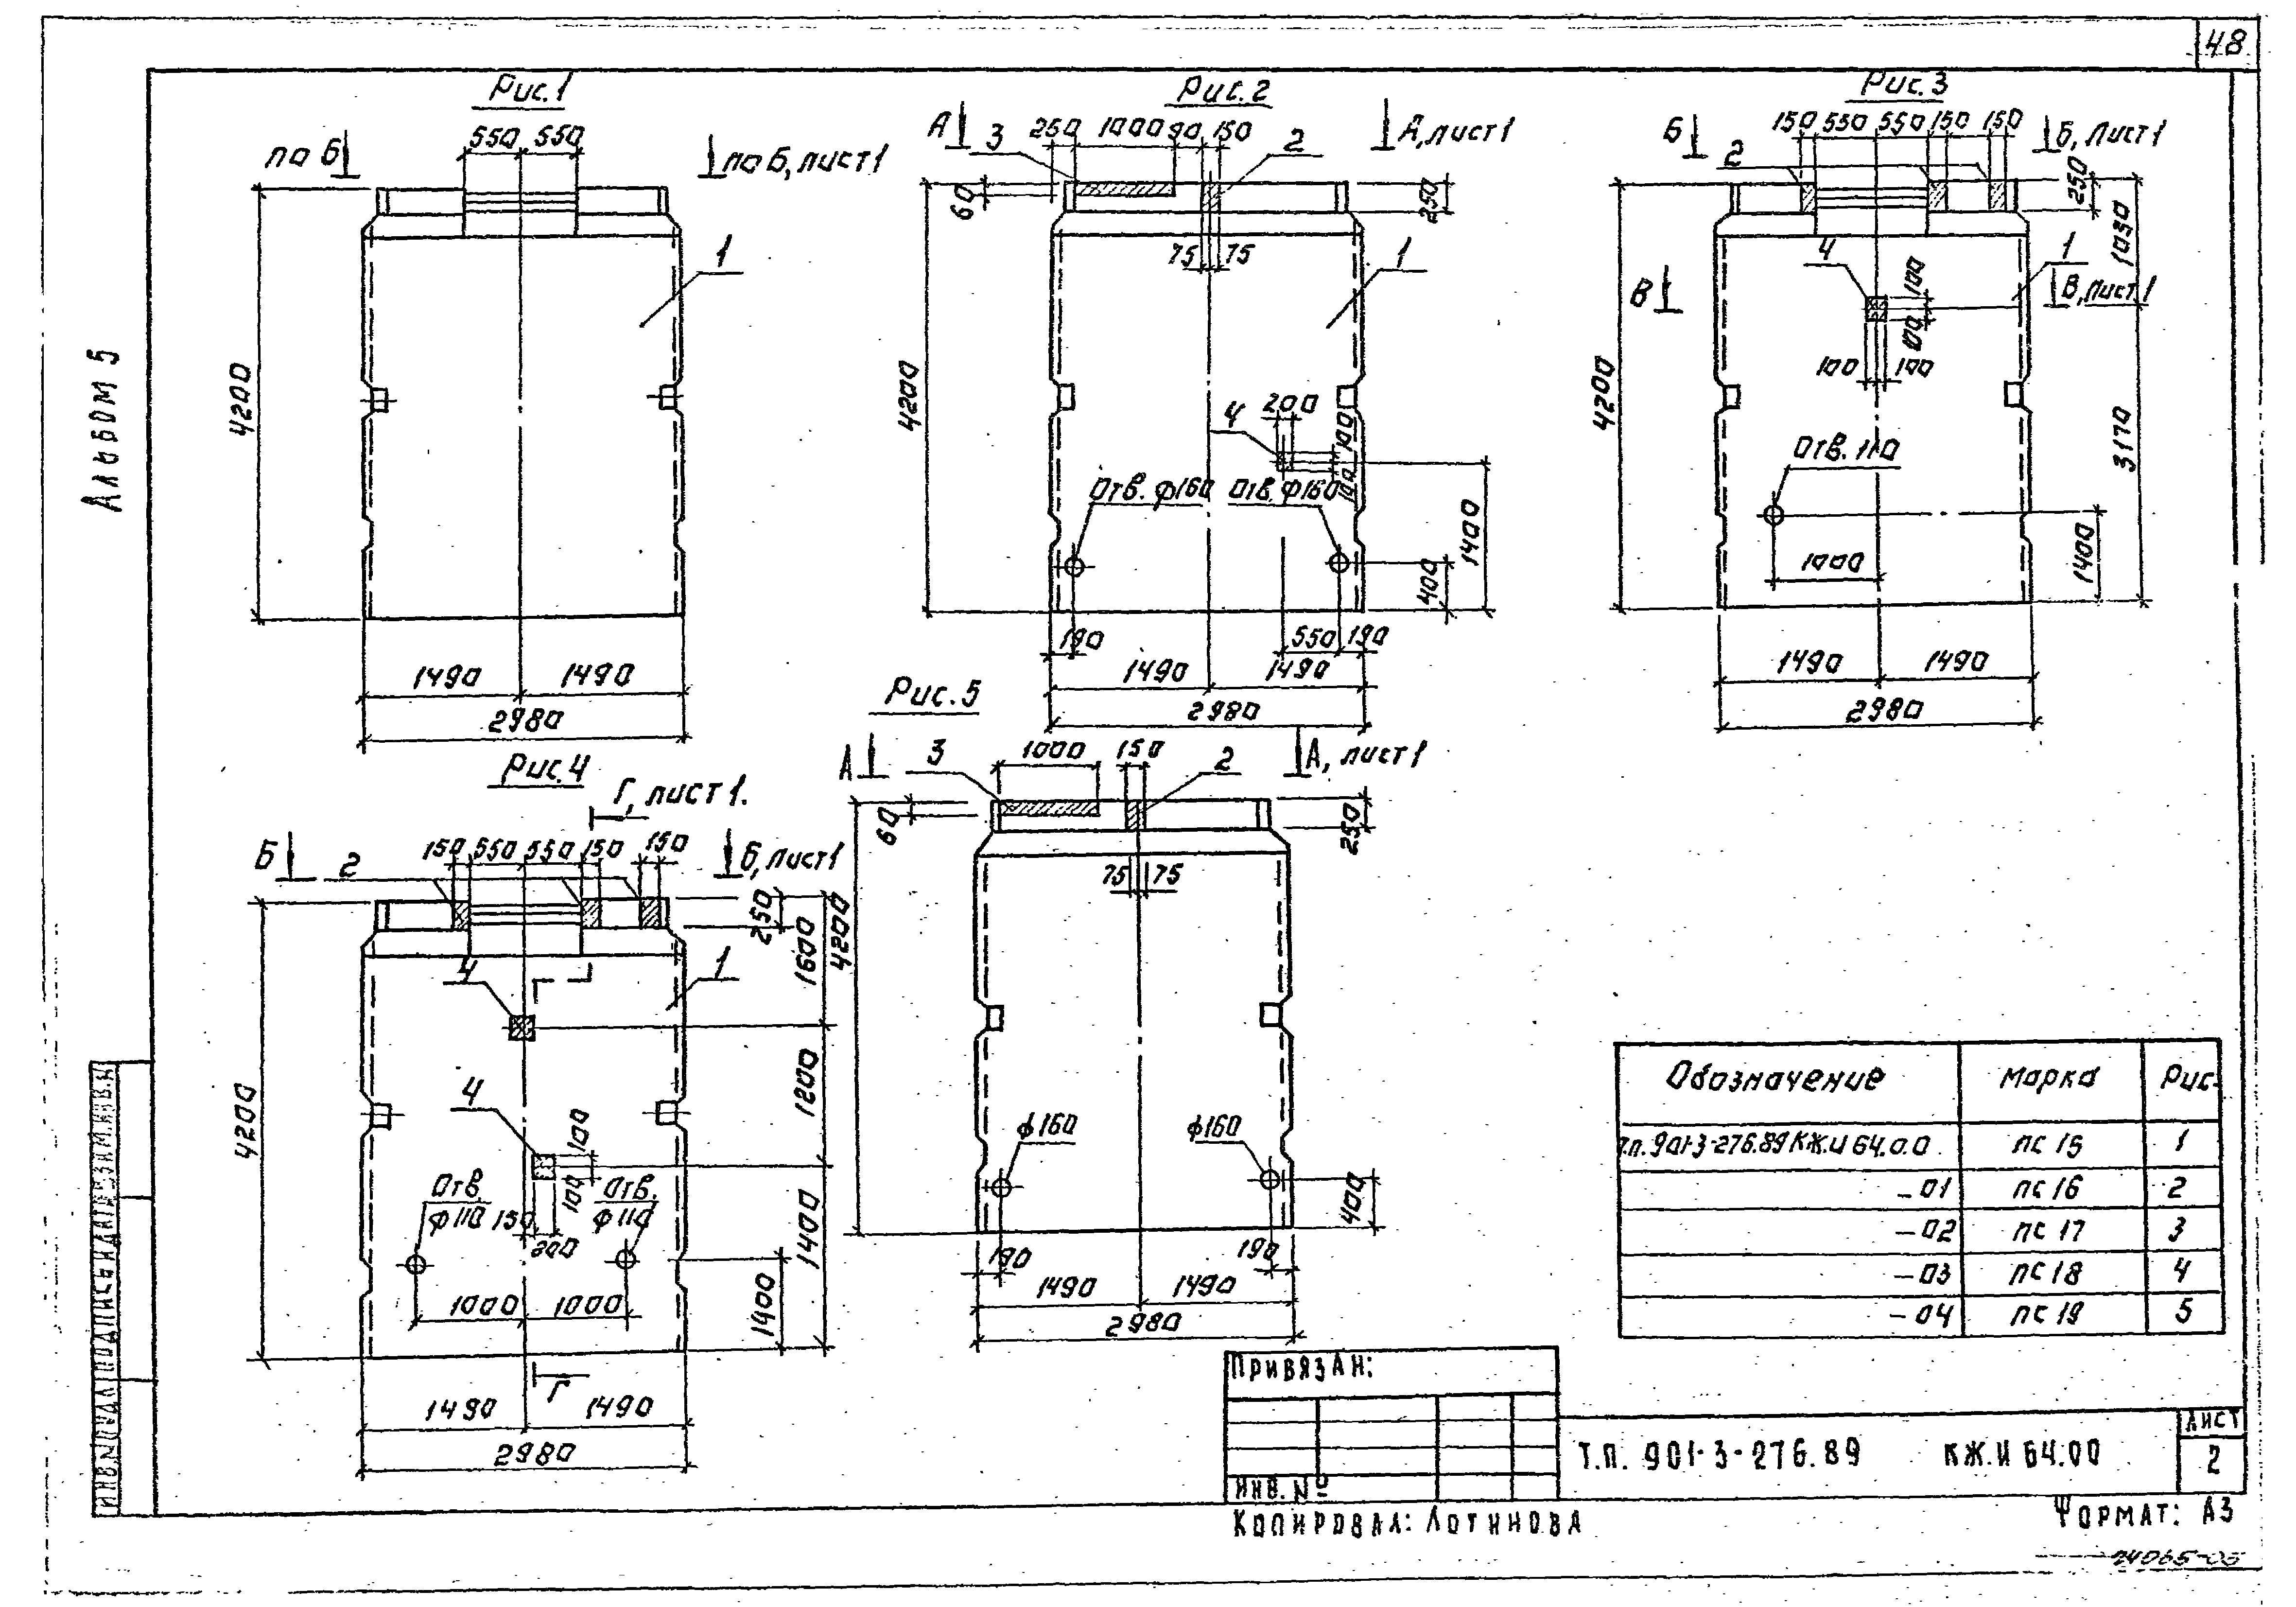 48
Альбом 5
Рис.1
550 550
по Б
по Б, лист 1
1
4200
1490 1490
2980
Рис. 2
А
3
250 1000 90 150
2
А, лист 1
60
250
75 75
1
4200
4
200
100
100
Отв. ф160 Отв. ф160
1400
400
190
550 190
1490 1490
2980
Рис. 3
Б
2
150 550 550 150 150
Б, лист 1
250
1030
4
1
100
100
В
В, лист 1
100 100
4200
3170
Отв. 110
1000
1400
1490 1490
2980
Рис. 4
Г, лист 1.
Б
2
150 550 550 150 150
Б, лист 1
250
1600
4
1
4200
1200
4
100
100
Отв. ф110
150
200
Отв. ф110
1400
1000 1000
1400
Г
1490 1490
2980
Рис. 5
А
3
1000 150
2
А, лист 1
60
250
75 75
4200
ф160 ф160
400
190 190
1490 1490
2980
Обозначение марка Рис.
Т.п. 901-3-276.89 КЖ.И 64.0.0 ПС 15 1
-01 ПС 16 2
-02 ПС 17 3
-03 ПС 18 4
-04 ПС 19 5
Привязан:
Инв. №
Т.П. 901-3-276.89 КЖ.И 64.00
Лист
2
Копировал: Лотинова
Формат: А3
Инв.№ подл. Подпись и дата Взам.инв.№
24065-05